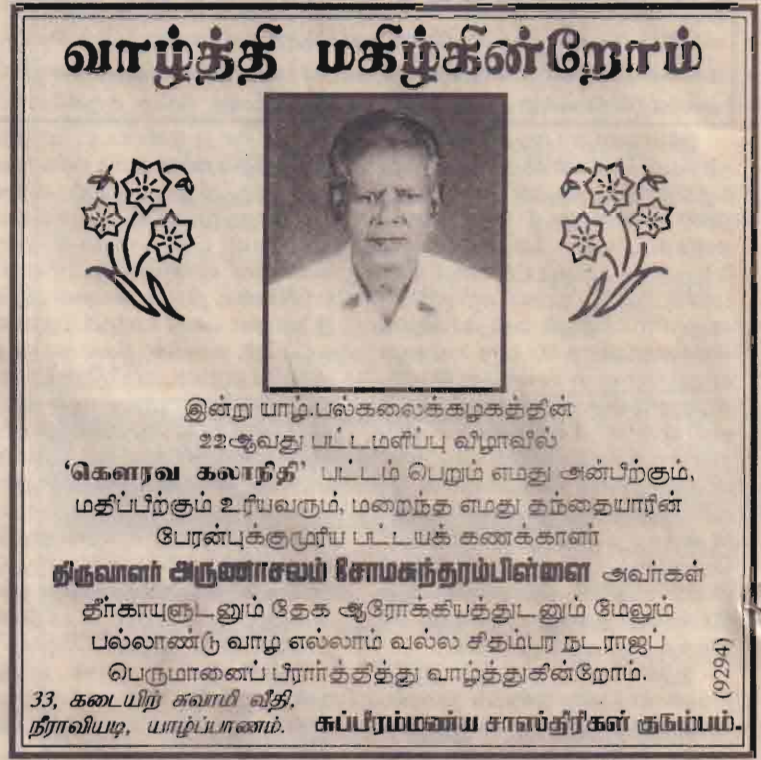 வாழ்த்தி மகிழ்கின்றோம்
இன்று யாழ்.பல்கலைக்கழகத்தின்
22ஆவது பட்டமளிப்பு விழாவில்
'கௌரவ கலாநிதி' பட்டம் பெறும் எமது அன்பிற்கும்,
மதிப்பிற்கும் உரியவரும், மறைந்த எமது தந்தையாரின்
பேரன்புக்குமுரிய பட்டயக் கணக்காளர்
திருவாளர் அருணாசலம் சோமசுந்தரம்பிள்ளை அவர்கள்
தீர்காயுளுடனும் தேக ஆரோக்கியத்துடனும் மேலும்
பல்லாண்டு வாழ எல்லாம் வல்ல சிதம்பர நடராஜப்
பெருமானைப் பிரார்த்தித்து வாழ்த்துகின்றோம்.
(9294)
33, கடையிற் சுவாமி வீதி,
நீராவியடி, யாழ்ப்பாணம். சுப்பிரம்மண்ய சாஸ்திரிகள் குடும்பம்.